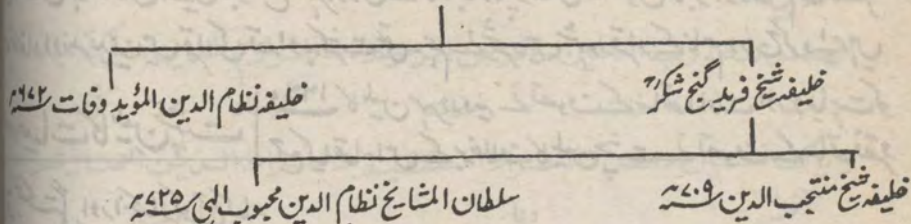 خلیفہ شیخ فرید گنج شکرؒ خلیفہ نظام الدین المؤید وفات ۶۷۲ھ
خلیفہ شیخ منتجب الدین ۷۰۹ھ سلطان المشایخ نظام الدین محبوب الہی ۷۲۵ھ